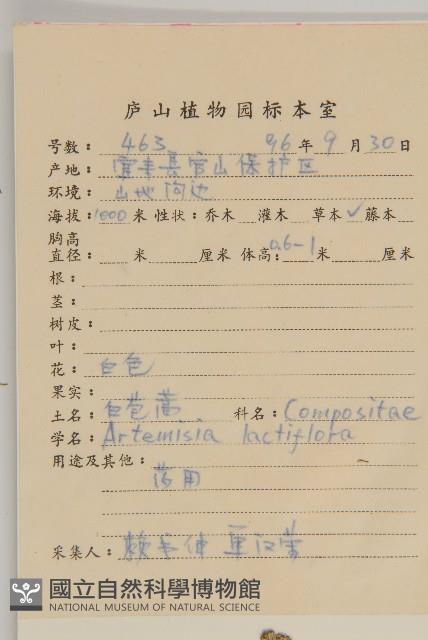 庐山植物园标本室
号数: 463 96年9月30日
产地: 宜丰县官山保护区
环境: 山地沟边
海拔: 1000米 性状: 乔木 灌木 草本✓藤本
胸高
直径: 米 厘米 体高: 0.6-1米 厘米
根:
茎:
树皮:
叶:
花: 白色
果实:
土名: 白苞蒿 科名: Compositae
学名: Artemisia lactiflora
用途及其他:
药用
采集人: 赖书
國立自然科學博物館
NATIONAL MUSEUM OF NATURAL SCIENCE